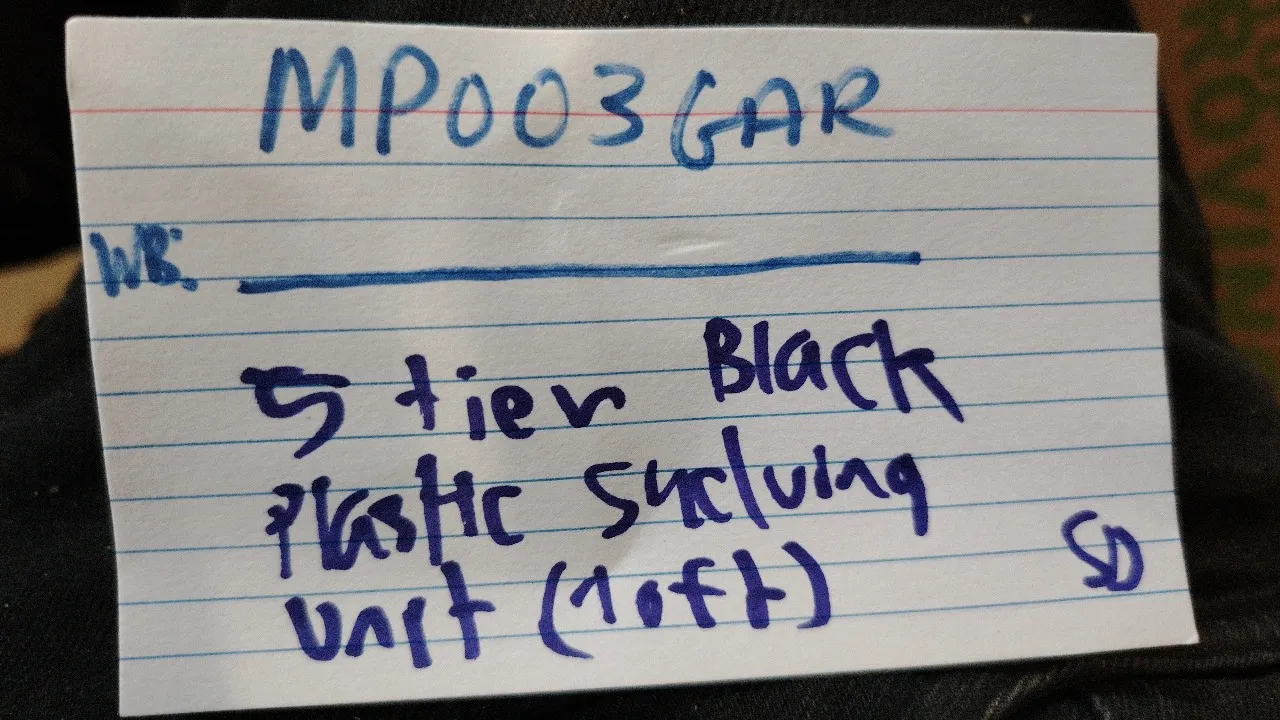 MP003GAR
WB:
5 tier Black
Plastic Shelving
Unit (1 of 1)
SD
ROVIN